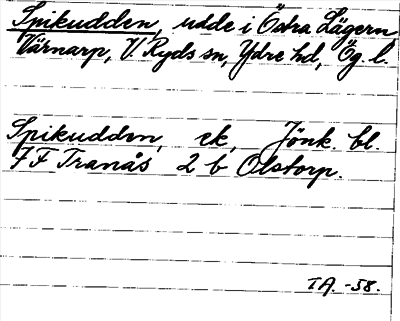 Spikudden, udde i Östra Lägern,
Värnarp, V. Ryds sn, Ydre hd, Ög. l.
Spikudden, ek, Jönk. bl.
7 F Tranås 2 b Olstorp.
TA. -58.